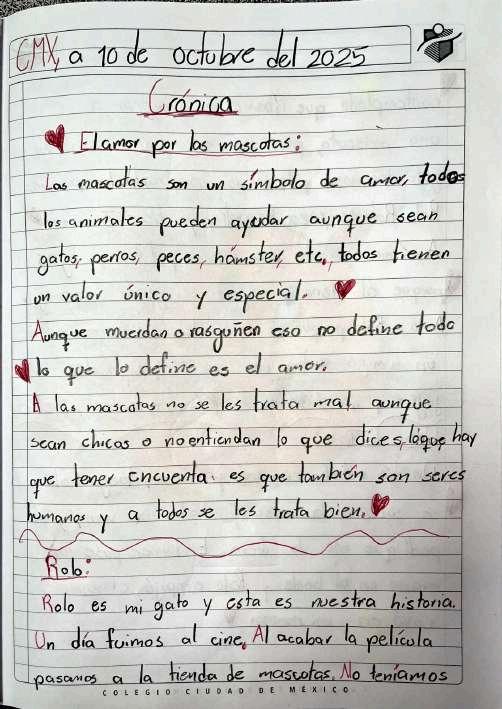 CMX, a 10 de octubre del 2025
Crónica
El amor por las mascotas:
Las mascotas son un símbolo de amor, todos
los animales pueden ayudar aunque sean
gatos, perros, peces, hámster, etc, todos tienen
un valor único y especial.
Aunque muerdan o rasguñen eso no define todo
lo que lo define es el amor.
A las mascotas no se les trata mal aunque
sean chicas o no entiendan lo que dices, loque hay
que tener encuenta. es que también son seres
humanos y a todos se les trata bien.
Rolo:
Rolo es mi gato y esta es nuestra historia.
Un día fuimos al cine, Al acabar la película
pasamos a la tienda de mascotas. No teníamos
COLEGIO CIUDAD DE MÉXICO